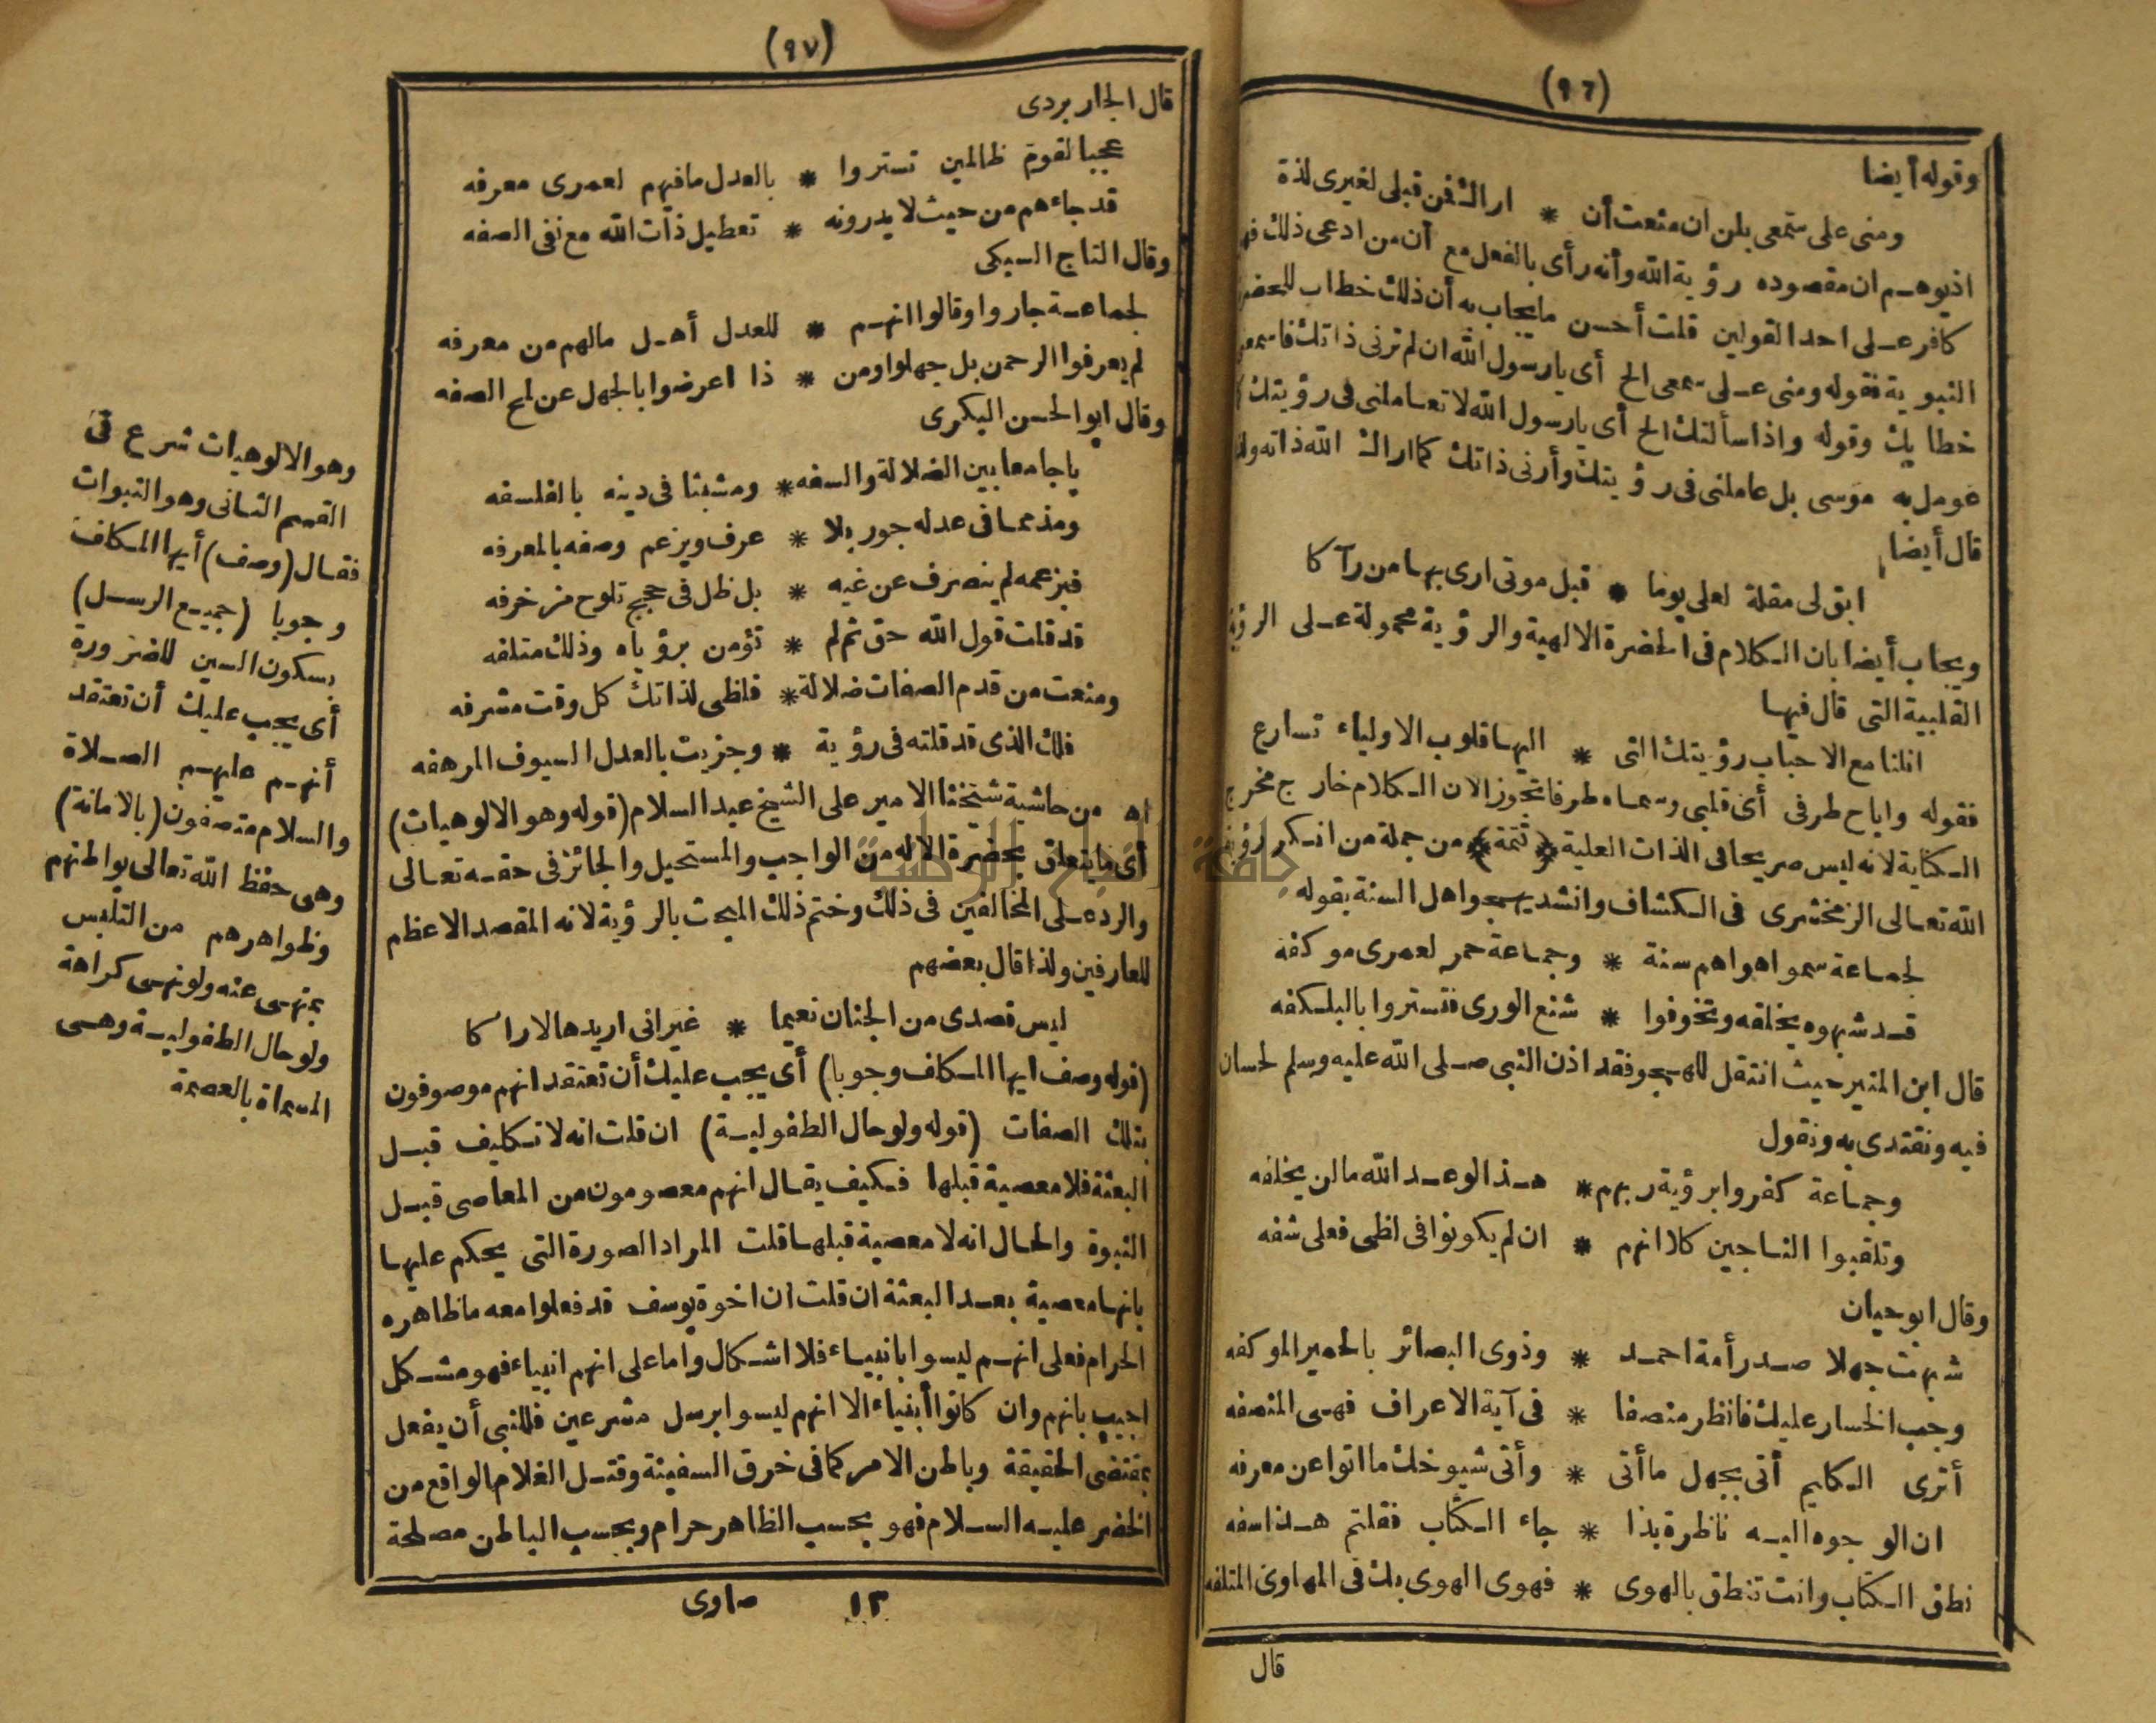 (٩٦)
وقوله أيضا
ومنى على سمعى بلن ان منعت أن * اراك فمن قبلى لغيرى لذة
اذ يوهم ان مقصوده رؤية الله وأنه رأى بالفعل مع أن من ادعى ذلك
كافر على احد القولين قلت أحسن ما يجاب به أن ذلك خطاب للحضرة
النبوية فقوله ومنى على سمعى الخ أى يا رسول الله ان لم ترنى ذاتك فاسمعنى
خطابك وقوله واذا سألتك الخ أى يا رسول الله لا تعاملنى فى رؤيتك
عومل به موسى بل عاملنى فى رؤيتك وأرنى ذاتك كما اراك الله ذاته
قال أيضا
ابق لى مقلة لعلى يوما * قبل موتى ارى بها من رآكا
ويجاب أيضا بان الكلام فى الحضرة الالهية والرؤية محمولة على الرؤية
القلبية التى قال فيها
انلنا مع الاحباب رؤيتك التى * اليها قلوب الاولياء تسارع
فقوله واباح طرفى أى قلبى وسماه طرفا تجوز الان الكلام خارج مخرج
الكناية لانه ليس صريحا فى الذات العلية ﴿تتمة﴾ من جملة من انكر رؤية
الله تعالى الزمخشرى فى الكشاف وانشد يهجو اهل السنة بقوله
لجماعة سموا هواهم سنة * وجماعة حمر لعمرى موكفه
قد شبهوه بخلقه وتخوفوا * شنع الورى فتستروا بالبلكفه
قال ابن المنير حيث انتقل للهجو فقد اذن النبى صلى الله عليه وسلم لحسان
فيه ونقتدى به ونقول
وجماعة كفروا برؤية ربهم * هذا الوعد الله ما لن يخلفه
وتلقبوا الناجين كلا انهم * ان لم يكونوا فى لظى فعلى شفه
وقال ابو حيان
شبهت جهلا صدر أمة احمد * وذوى البصائر بالحمير الموكفه
وجب الخسار عليك فانظر منصفا * فى آية الاعراف فهى المنصفه
أترى الكليم أتى بجهل ما أتى * وأتى شيوخك ما اتوا عن معرفه
ان الوجوه اليه ناظرة بذا * جاء الكتاب فقلتم هذا سفه
نطق الكتاب وانت تنطق بالهوى * فهوى الهوى بك فى المهاوى المتلفه
قال
(٩٧)
قال الجاربردى
عجبا لقوم ظالمين تستروا * بالعدل ما فيهم لعمرى معرفه
قد جاءهم من حيث لا يدرونه * تعطيل ذات الله مع نفى الصفه
وقال التاج السبكى
لجماعة جاروا وقالوا انهم * للعدل أهل ما لهم من معرفه
لم يعرفوا الرحمن بل جهلوا ومن * ذا اعرضوا بالجهل عن لمح الصفه
وقال ابو الحسن البكرى
يا جامعا بين الضلالة والسفه * ومشبتا فى دينه بالفلسفه
ومذعما فى عدله جور بلا * عرف ويزعم وصفه بالمعرفه
فبزعمه لم ينصرف عن غيه * بل ظل فى حجج تلوح مزخرفه
قد قلت قول الله حق ثم لم * تؤمن برؤياه وذلك متلفه
ومنعت من قدم الصفات ضلالة * فلظى لذاتك كل وقت مشرفه
فلك الذى قد قلته فى رؤية * وجزيت بالعدل السيوف المرهفه
اه من حاشية شيخنا الامير على الشيخ عبد السلام (قوله وهو الالوهيات)
أى ما يتعلق بحضرة الاله من الواجب والمستحيل والجائز فى حقه تعالى
والرد على المخالفين فى ذلك وختم ذلك المبحث بالرؤية لانه المقصد الاعظم
للعارفين ولذا قال بعضهم
ليس قصدى من الجنان نعيما * غير انى اريدها لاراكا
(قوله وصف ايها المكلف وجوبا) أى يجب عليك أن تعتقد انهم موصوفون
بتلك الصفات (قوله ولو حال الطفولية) ان قلت انه لا تكليف قبل
البعثة فلا معصية قبلها فكيف يقال انهم معصومون من المعاصى قبل
النبوة والحال انه لا معصية قبلها قلت المراد الصورة التى يحكم عليها
بانها معصية بعد البعثة ان قلت ان اخوة يوسف قد فعلوا معه ما ظاهره
الحرام فعلى انهم ليسوا بانبياء فلا اشكال واما على انهم انبياء فهو مشكل
اجيب بانهم وان كانوا أنبياء الا انهم ليسوا برسل مشرعين فللنبى أن يفعل
بمقتضى الحقيقة وباطن الامر كما فى خرق السفينة وقتل الغلام الواقع من
الخضر عليه السلام فهو بحسب الظاهر حرام وبحسب الباطن مصلحة
١٣ صاوى
وهو الالوهيات شرع فى
القسم الثانى وهو النبوات
فقال (وصف) أيها المكلف
وجوبا (جميع الرسل)
بسكون السين للضرورة
أى يجب عليك أن تعتقد
أنهم عليهم الصلاة
والسلام متصفون (بالامانة)
وهى حفظ الله تعالى بواطنهم
وظواهرهم من التلبس
بمنهى عنه ولو نهى كراهة
ولو حال الطفولية وهى
المسماة بالعصمة
جامعة النجاح الوطنية